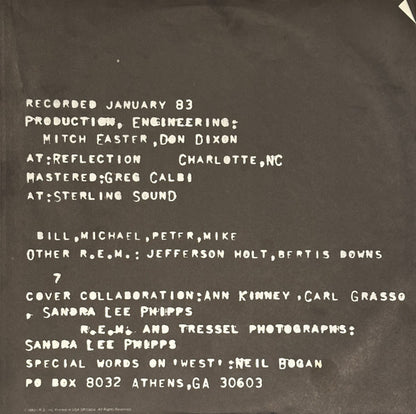 RECORDED JANUARY 83
PRODUCTION, ENGINEERING:
MITCH EASTER ,DON DIXON
AT:REFLECTION CHARLOTTE,NC
MASTERED:GREG CALBI
AT:STERLING SOUND
BILL,MICHAEL,PETER,MIKE
OTHER R.E.M.: JEFFERSON HOLT,BERTIS DOWNS
7
COVER COLLABORATION:ANN KINNEY ,CARL GRASSO
, SANDRA LEE PHIPPS
R.E.M. AND TRESSEL PHOTOGRAPHS:
SANDRA LEE PHIPPS
SPECIAL WORDS ON 'WEST' :NEIL BOGAN
PO BOX 8032 ATHENS,GA 30603